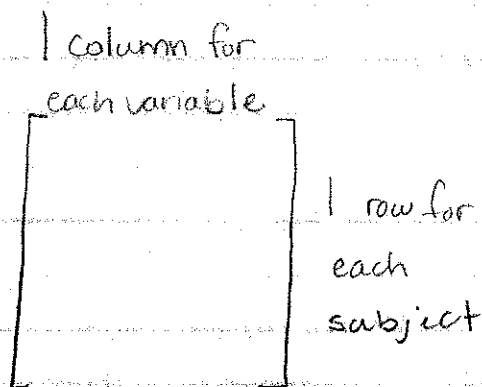 1 column for
each variable
1 row for
each
subject